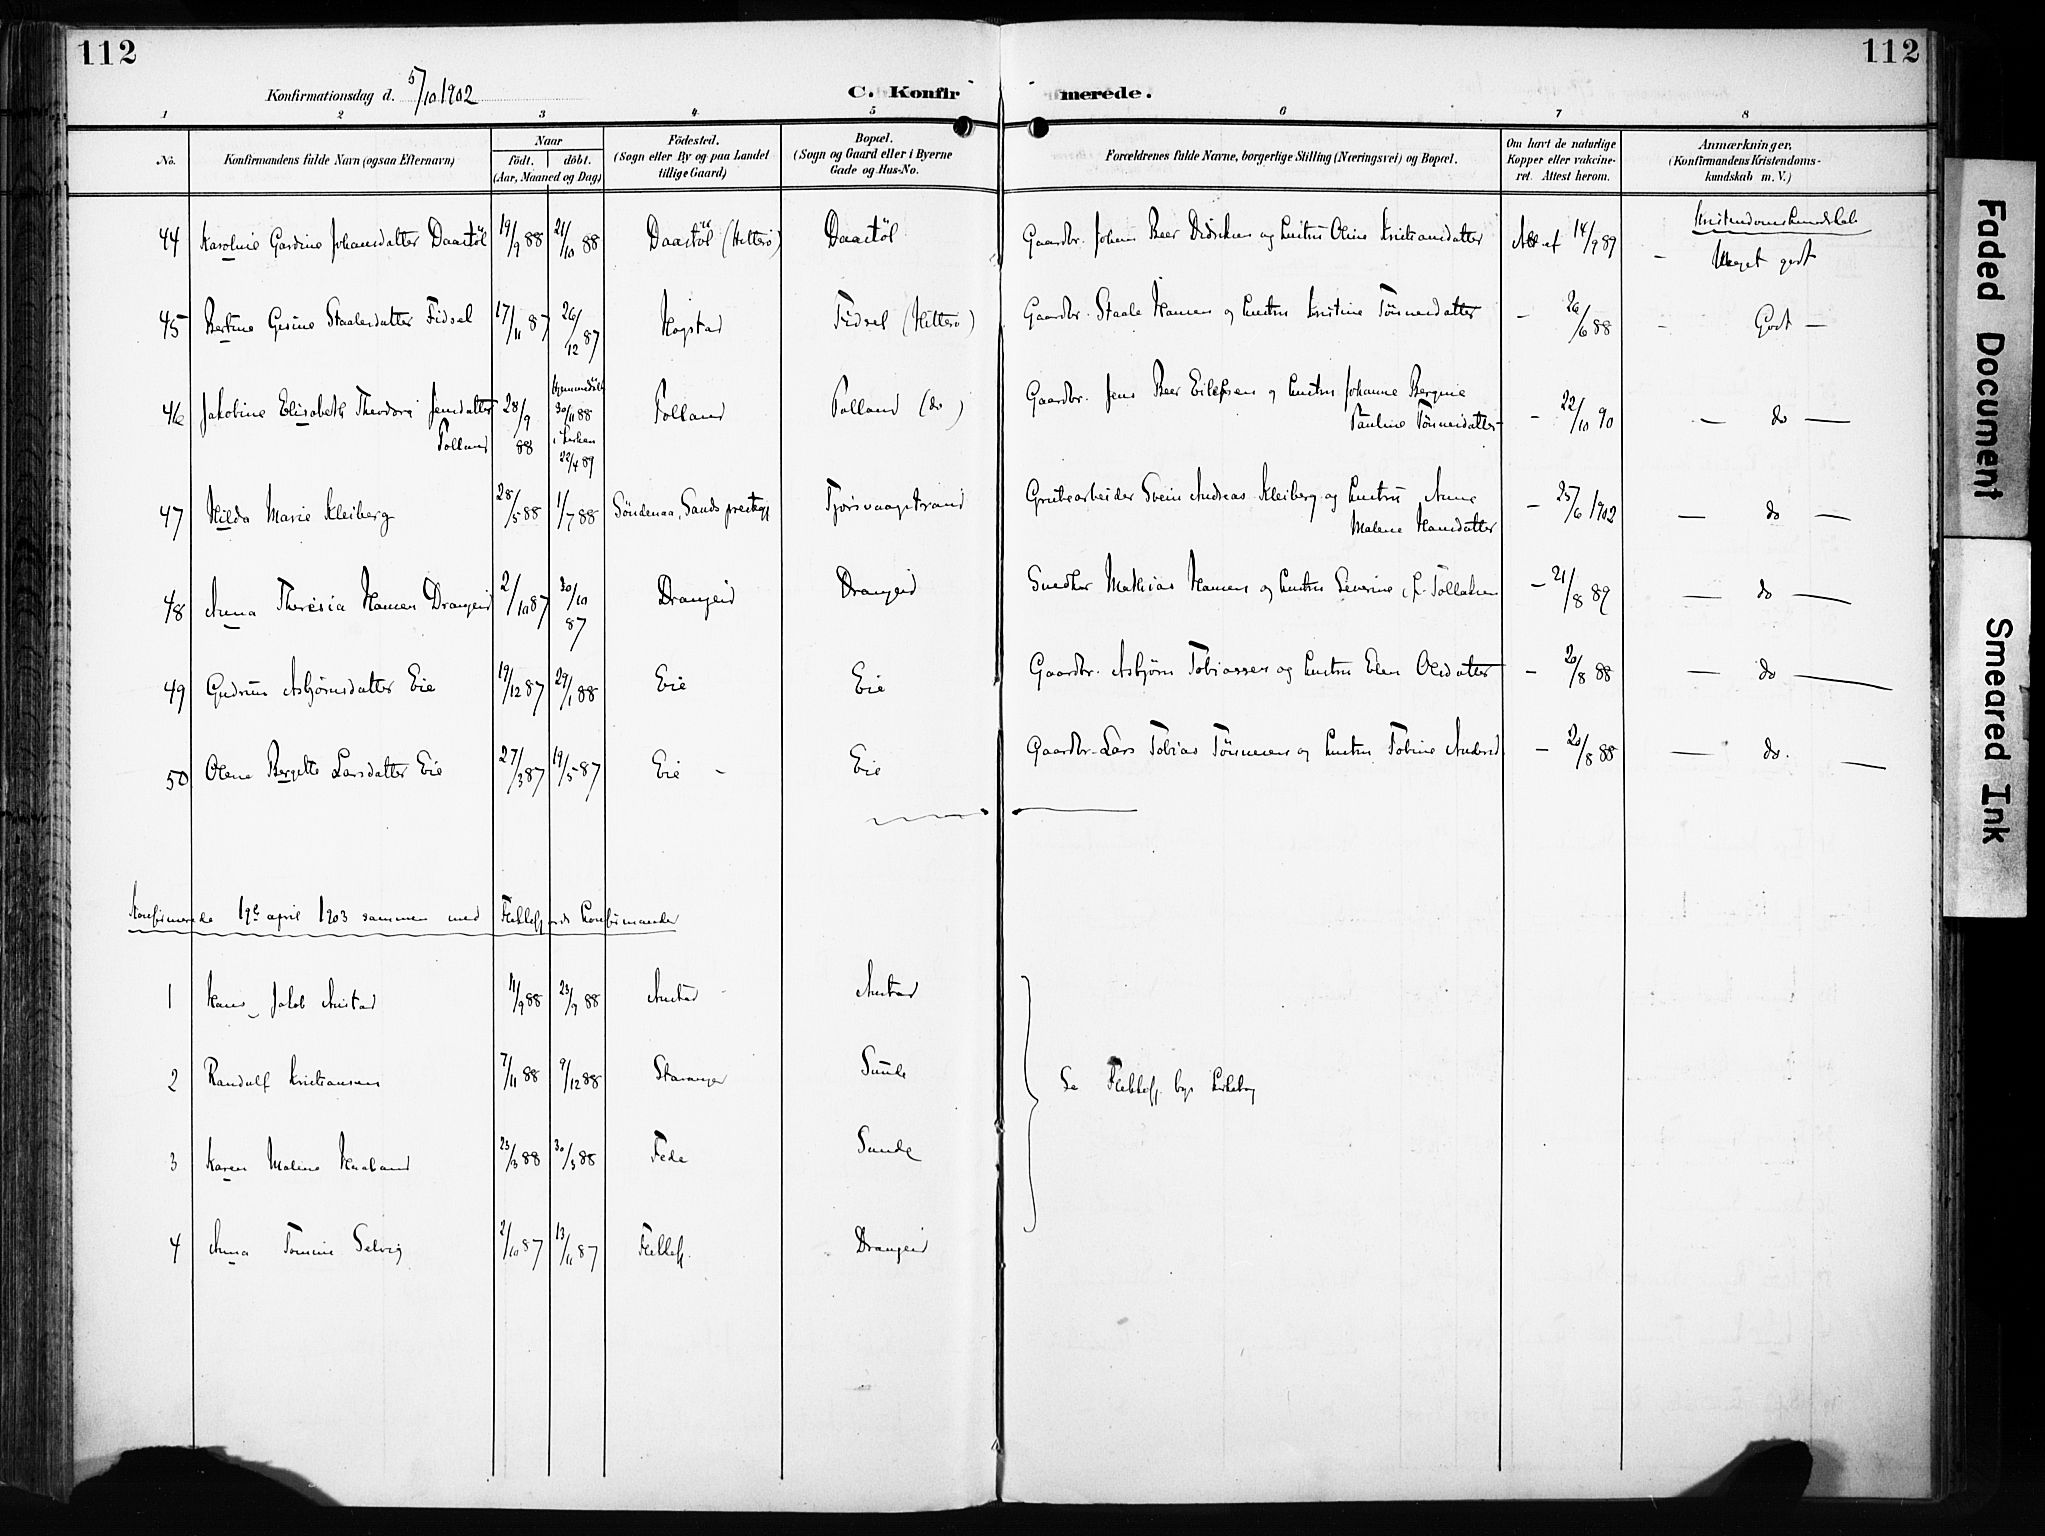 112
112
Konfirmationsdag d. 5/10 1902
C. Konfir
merede.
1 2 3 4 5 6 7 8
No.
Konfirmandens fulde Navn (ogsaa Efternavn)
Naar
födt. döbt.
(Aar, Maaned og Dag)
Födested.
(Sogn eller By og paa Landet
tillige Gaard)
Bopæl.
(Sogn og Gaard eller i Byerne
Gade og Hus-No.
Forældrenes fulde Navne, borgerlige Stilling (Næringsvei) og Bopæl.
Om havt de naturlige
Kopper eller vakcine-
ret. Attest herom.
Anmærkninger.
(Konfirmandens Kristendoms-
kundskab m. V.)
Kristendomskundskab
44 Karoline Gardine Johansdatter Daastöl 19/9 88 21/10 88 Daastöl (Hitterö) Daastöl Gaardbr. Johan Beer Didriksen og hustru Oline Kristiansdatter Att af 14/9 89 - Meget godt
45 Bertine Gesine Staalesdatter Fidsel 17/11 87 26/12 87 Hogstad Fidsel (Hitterö) Gaardbr. Staale Hansen og hustru Kristine Tönnesdatter - 26/6 88 - Godt -
46 Jakobine Elisabeth Theodora Jensdatter Tolland 28/9 88 Hjemmedöbt 30/11 88 i kirken 22/4 89 Tolland Tolland (do) Gaardbr. Jens Beer Eilefsen og hustru Johanne Bergine
Pauline Tönnesdatter - 22/10 90 - do -
47 Hilda Marie Kleiberg 28/5 88 1/7 88 Söndenaa, Sands prestegj Tjörsvaagstrand Grubearbeider Svein Andreas Kleiberg og hustru Anne
Malene Hansdatter - 25/6 1902 - do -
48 Anna Theresia Hansen Drangeid 2/10 87 30/10 87 Drangeid Drangeid Snedker Mathias Hansen og hustru Severine f. Tollaksen - 21/8 89 - do -
49 Gudrun Asbjörnsdatter Eie 19/12 87 29/1 88 Eie Eie Gaardbr. Asbjörn Tobiassen og hustru Elen Olsdatter - 20/8 88 - do -
50 Olene Bergitte Larsdatter Eie 27/3 87 19/5 87 Eie - Eie Gaardbr. Lars Tobias Tönnesen og hustru Tobine Andersd - 20/8 88 - do. -
Konfirmerede 19de april 1903 sammen med Flekkefjords konfirmander
1 Hans Jakob Austad 11/9 88 23/9 88 Austad Austad
2 Randulf Kristiansen 7/11 88 9/12 88 Stavanger Sunde
Se Flekkefj. bys kirkebog
3 Karen Maline Knaband 23/3 88 30/3 88 Fede Sunde
4 Anna Tomine Selvig 2/10 87 13/11 87 Flekkefj. Drangeid
Faded Document
Smeared Ink